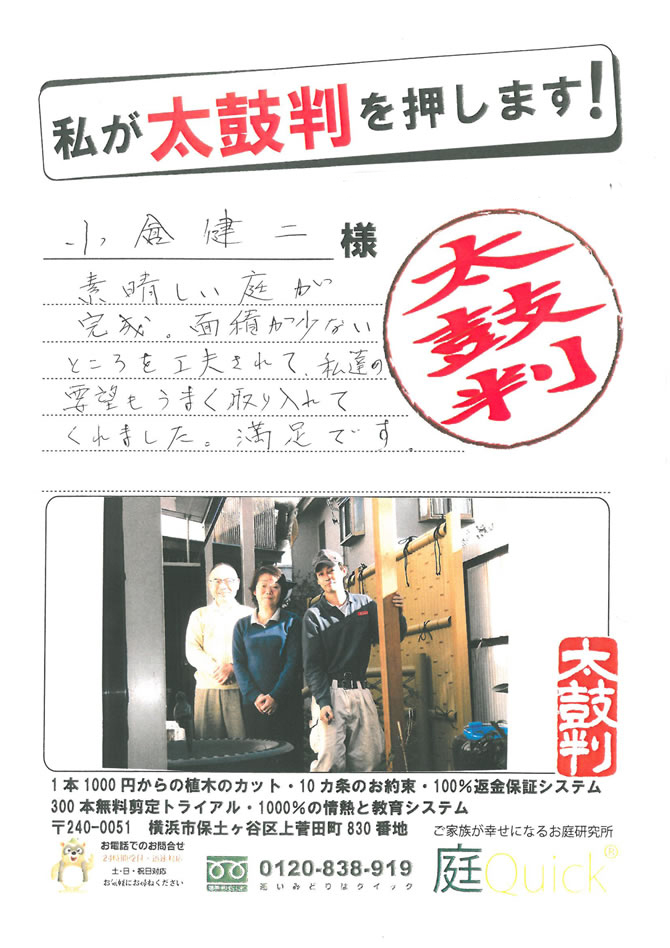 私が太鼓判を押します!
小倉健二 様
太鼓判
素晴しい庭が
完成。面積が少ない
ところを工夫されて、私達の
要望もうまく取り入れて
くれました。満足です。
太鼓判
1本1000円からの植木のカット・10カ条のお約束・100%返金保証システム
300本無料剪定トライアル・1000%の情熱と教育システム
〒240-0051 横浜市保土ヶ谷区上菅田町830番地
ご家族が幸せになるお庭研究所
お電話でのお問合せ
24時間受付・迅速対応
土・日・祝日対応
お気軽にお尋ねください
0120-838-919
庭Quick®